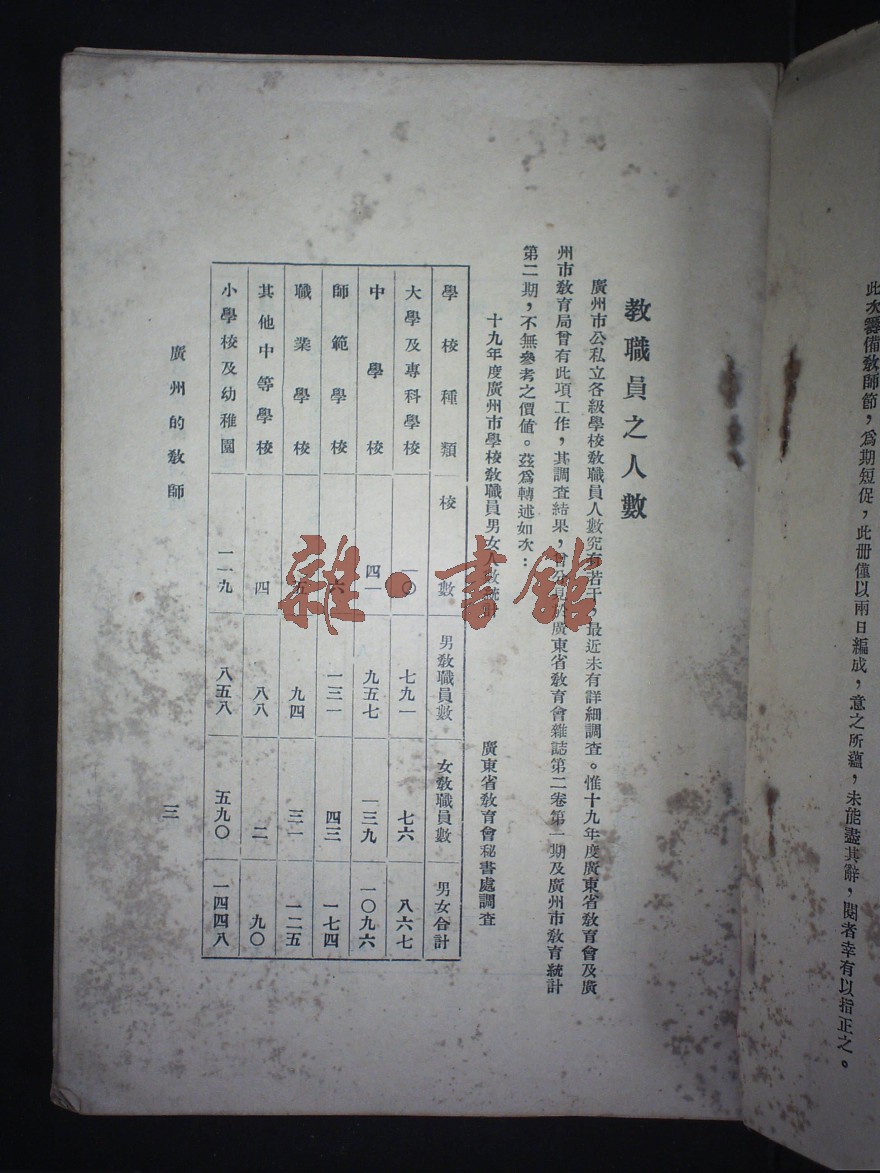 此次籌備教師節，爲期短促，此册僅以兩日編成，意之所蘊，未能盡其辭，閱者幸有以指正之。
教職員之人數
廣州市公私立各級學校教職員人數究有若干，最近未有詳細調查。惟十九年度廣東省教育會及廣
州市教育局曾有此項工作，其調查結果，曾分見於廣東省教育會雜誌第二卷第一期及廣州市教育統計
第二期，不無參考之價值。茲爲轉述如次：
十九年度廣州市學校教職員男女人數統計
廣東省教育會秘書處調查
學校種類 校數 男教職員數 女教職員數 男女合計
大學及專科學校 一〇 七九一 七六 八六七
中學校 四一 九五七 一三九 一〇九六
師範學校 六 一三一 四三 一七四
職業學校 五 九四 三一 一二五
其他中等學校 四 八八 二 九〇
小學校及幼稚園 一一九 八五八 五九〇 一四四八
廣州的教師
三
雜·書館